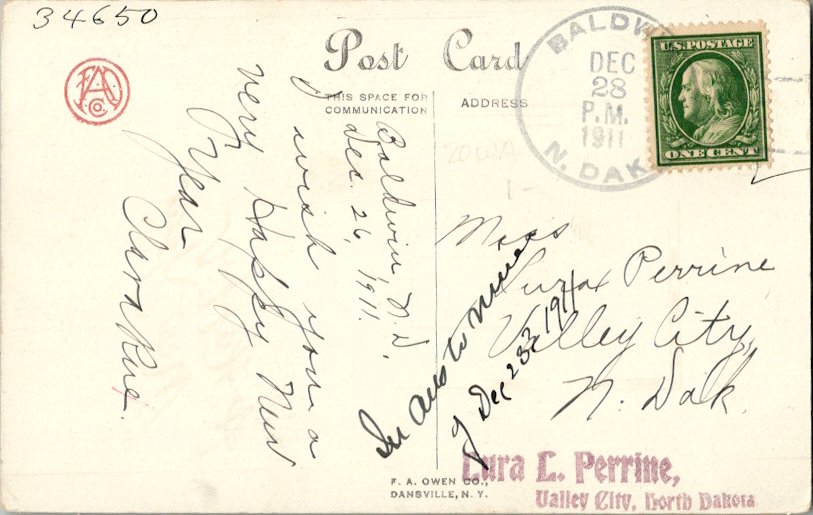 34650
FAO
Co.
Post Card
THIS SPACE FOR
COMMUNICATION
ADDRESS
BALDWIN
DEC
28
P.M.
1911
N. DAK
U.S. POSTAGE
ONE CENT
Baldwin N.D.
Dec. 26, 1911.
I wish you a
very Happy New
Year
Clara Rue.
Miss
Lura Perrine
Valley City,
N. Dak.
In ans to mine
of Dec 23rd 1911
Lura L. Perrine,
Valley City, North Dakota
F. A. OWEN CO.,
DANSVILLE, N. Y.